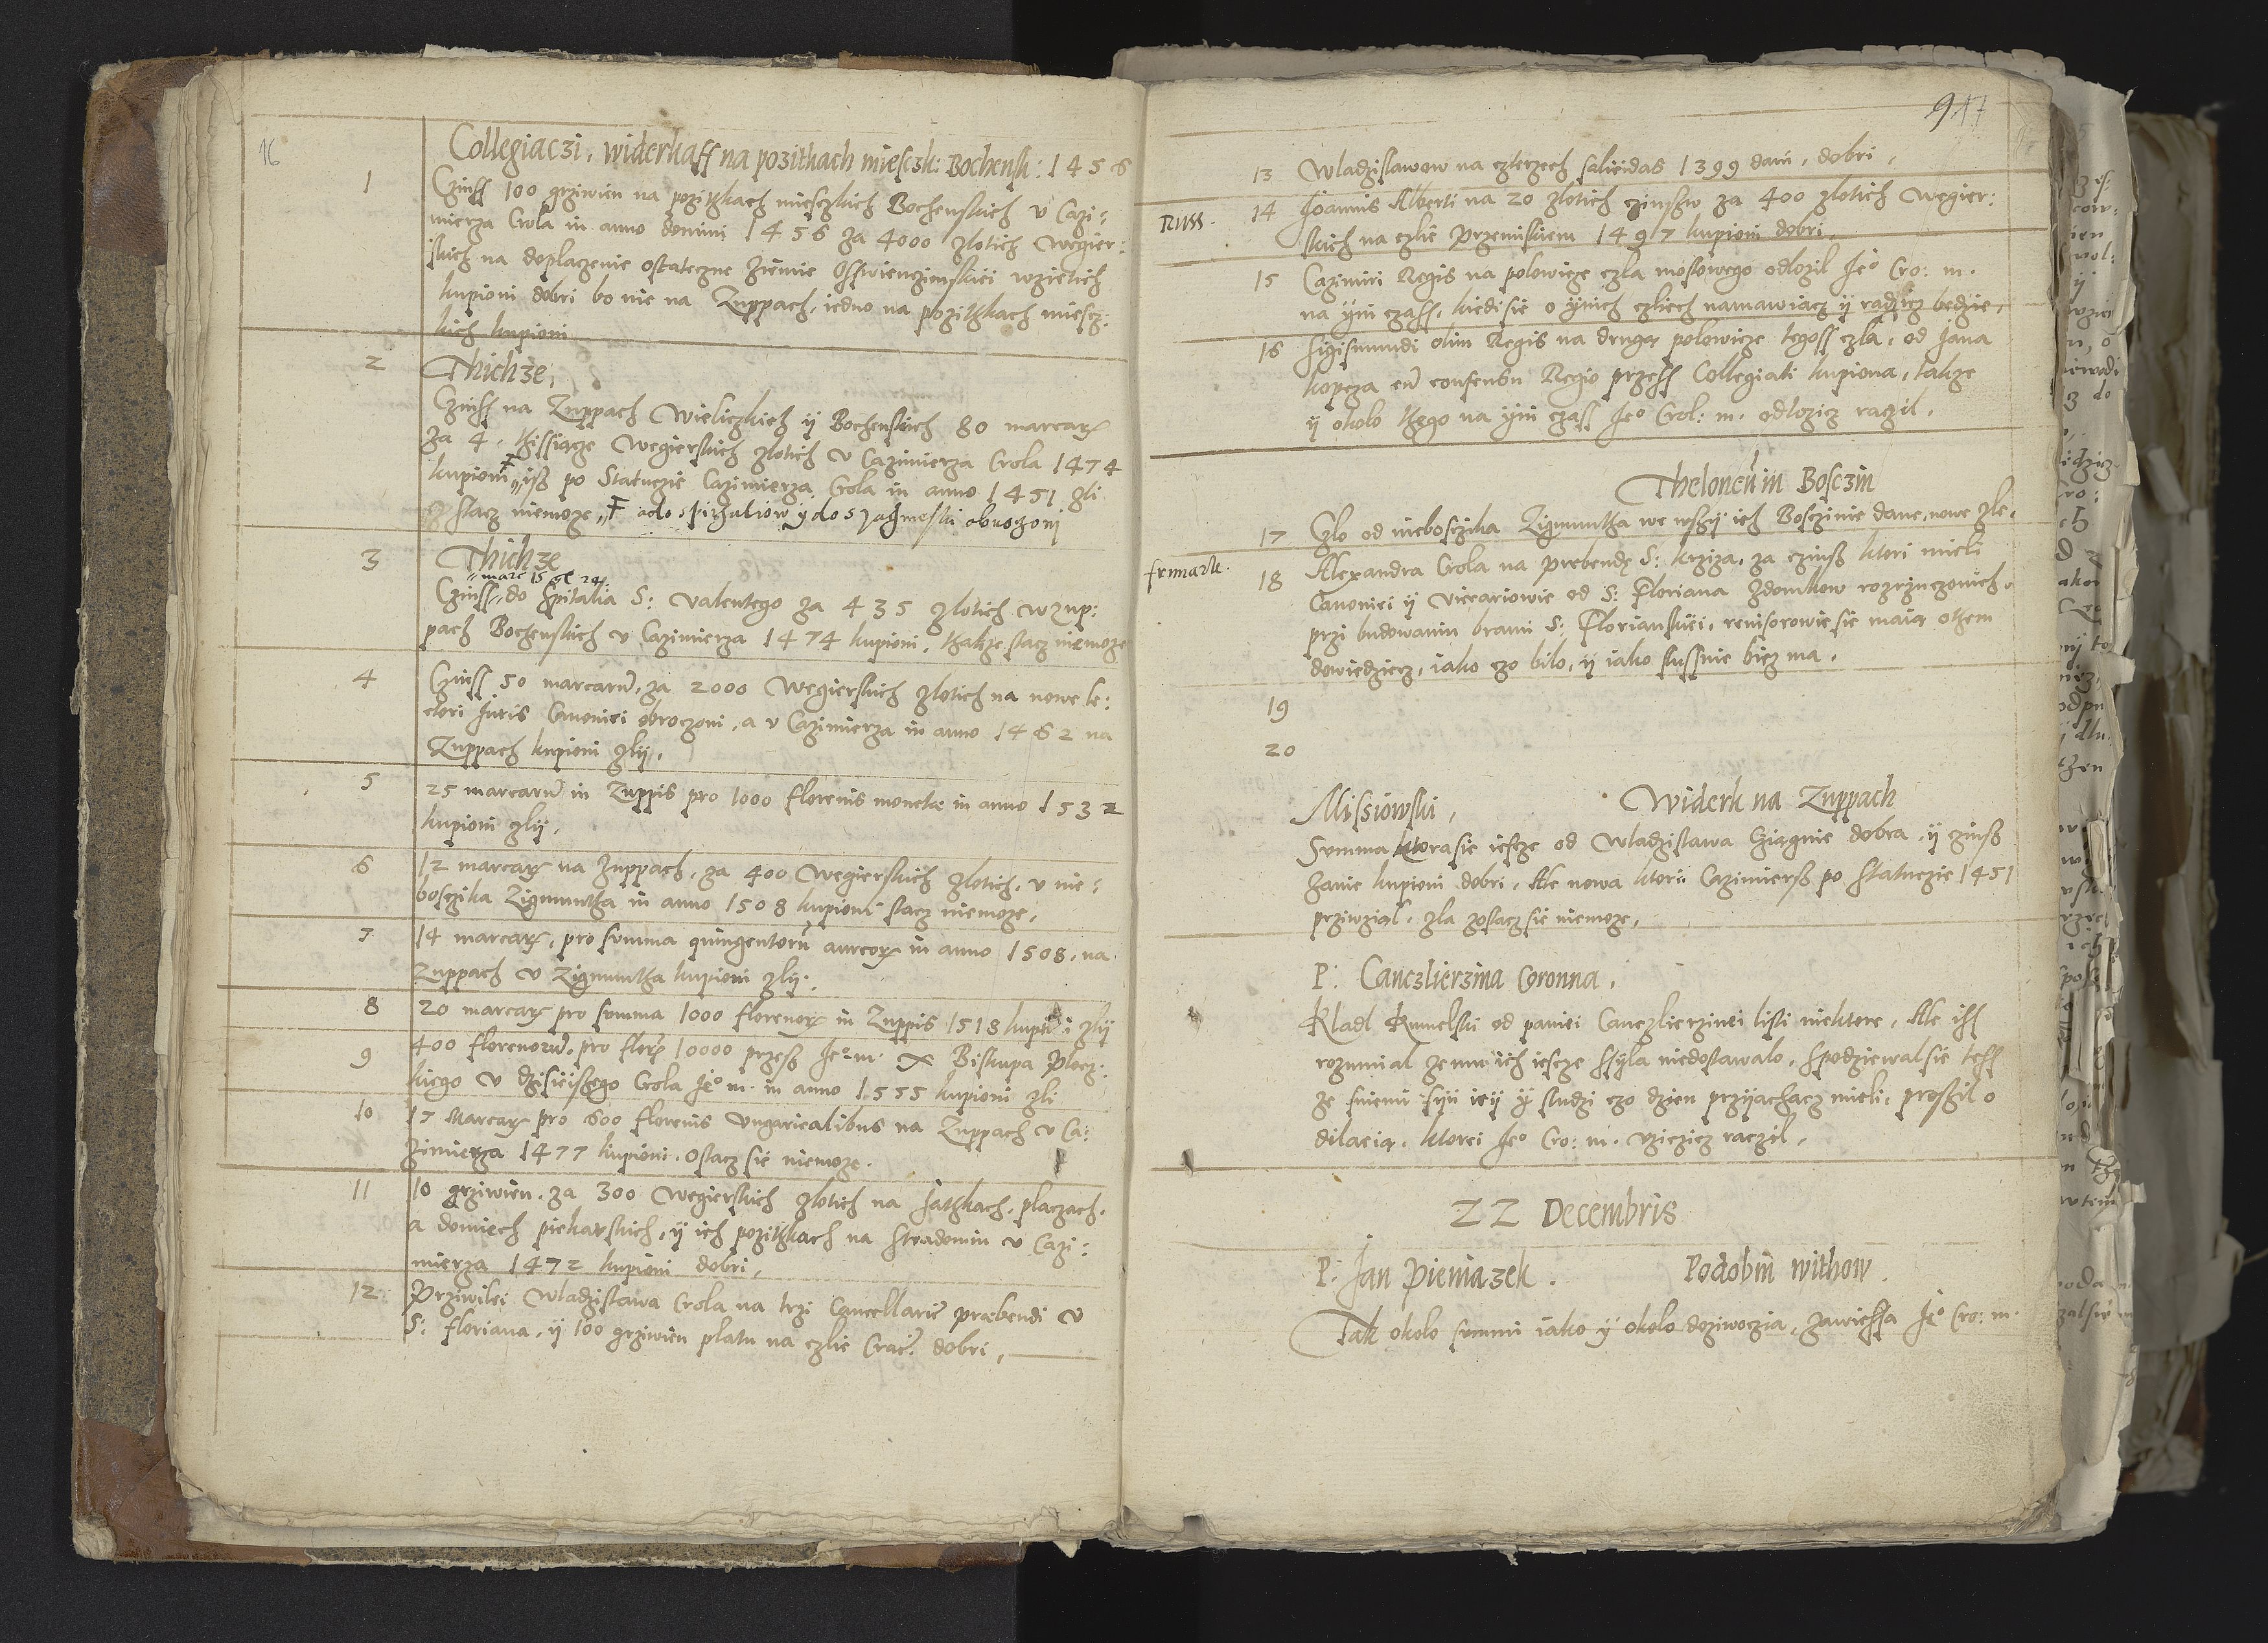 16
Collegiaczi, widerkaff na pozitkach miesczk: Bochensk: 1456
1 Czinss 100 grziwien na pozitkach miesczkich Bochenskich v Cazi:
mierza Crola in anno domini 1456 za 4000 zlotich Wegier:
skich na doplaczenie ostateczne ziemie Osswienczimskiei wzietich
kupioni dobri bo nie na Zuppach, iedno na pozitkach miescz:
kich kupioni
2 Thichze,
Czinss na Zuppach Wieliczkich ÿ Bochenskich 80 marcar
za 4. thissiącze Wegierskich zlotich v Cazimierza Crola 1474
kupioni isz po Statuczie Cazimierza Crola in anno 1451 zli
stacz niemoze
3 Thichze
marc 15 gr 24
Czinss do Spitalia S: Valentego za 435 zlotich w zup:
pach Bochenskich v Cazimierza 1474 kupioni, thakze stacz niemoze
4 Czinss 50 marcarũ, za 2000 Wegierskich zlotich na nowe le:
ctori Juris Canonici obroczoni, a v Cazimierza in anno 1462 na
Zuppach kupioni zlÿ,
5 25 marcarũ in Zuppis pro 1000 florenis monetæ in anno 1532
kupioni zlÿ,
6 12 marcar na Zuppach, za 400 Wegierskich zlotich, v nie:
bosczika Zigmuntha in anno 1508 kupioni stacz niemoze,
7 14 marcar, pro summa quingentorũ aureor in anno 1508, na
Zuppach v Zigmuntha kupioni zlÿ.
8 20 marcar pro summa 1000 florenor in Zuppis 1518 kupioni zlÿ
9 400 florenorũ, pro flor 10000 przesz Je° m. X Biskupa Plocz:
kiego v dzisieiszego Crola Je° m. in anno 1555 kupioni zli
10 17 Marcar pro 600 florenis Ungaricalibus na Zuppach v Ca:
zimierza 1477 kupioni. Ostacz sie niemoze.
11 10 grziwien, za 300 Wegierskich zlotich na Jathkach, placzach,
a domiech piekarskich, ÿ ich pozitkach na Stradomiu v Cazi:
mierza 1472 kupioni dobri,
12 Prziwilei Wladzislawa Crola na trzi Cancellariæ præbendi v
S: Floriana, ÿ 100 grziwien platu na czlie Crac: dobri,
9 17
13 Wladzislawow na czterzech saliidas 1399 dani, dobri,
Russ. 14 Joannis Alberti na 20 zlotich czinssu za 400 zlotich Wegier:
skich na czlie Przemiskiem 1497 kupioni dobri.
15 Cazimiri Regis na polowicze czla mostowego odlozil Je° Cro: m.
na ÿni czass, kiedi sie o ÿnich czliech namawiacz ÿ radzicz bedzie,
16 Sigismundi olim Regis na drugą polowicze tegoss czla, od Jana
kopcza cũ consensu Regio przess Collegiati kupiona, takze
ÿ okolo thego na ÿni czass Je° Crol: m. odlozicz raczil.
Theloneũ in Bosczin
17 Czlo od niebosczika Zigmuntha we wszÿ ich Bosczinie dane, nowe zle.
frimark. 18 Alexandra Crola na præbendę S: krziza, za czinsz ktori mieli
Canonici ÿ Vicariowie od S: Floriana z domkow rozrzuczonich
przi budowaniu brami S: Florianskiei, revisorowie sie maią othem
dowiedziecz, iako czo bilo, ÿ iako slussnie bicz ma.
19
20
Missiowski, Widerk na Zuppach
Summa ktora sie iescze od Wladzislawa cziągnie dobra, ÿ czinsz
zanie kupioni dobri, Ale nowa ktorą Cazimiersz po Statuczie 1451
prziwziął, zla zostacz sie niemoze,
P: Canczlierzina Coronna.
Kladl Kumelski od paniei Canczlierzinei listi niektore, Ale ihss
rozumial ze mu ich iescze hsÿla niedostawalo, spodziewal sie tehss
ze sniemi sÿn ieÿ ÿ sludzi czo dzien przÿachacz mieli, prossil o
dilacią, ktorei Je° Cro: m. vziczicz raczil.
22 Decembris
P: Jan Pieniazek. Podobin withow.
Tak okolo summi iako ÿ okolo dozivoczia, zawiehsa Je° Cro: m.